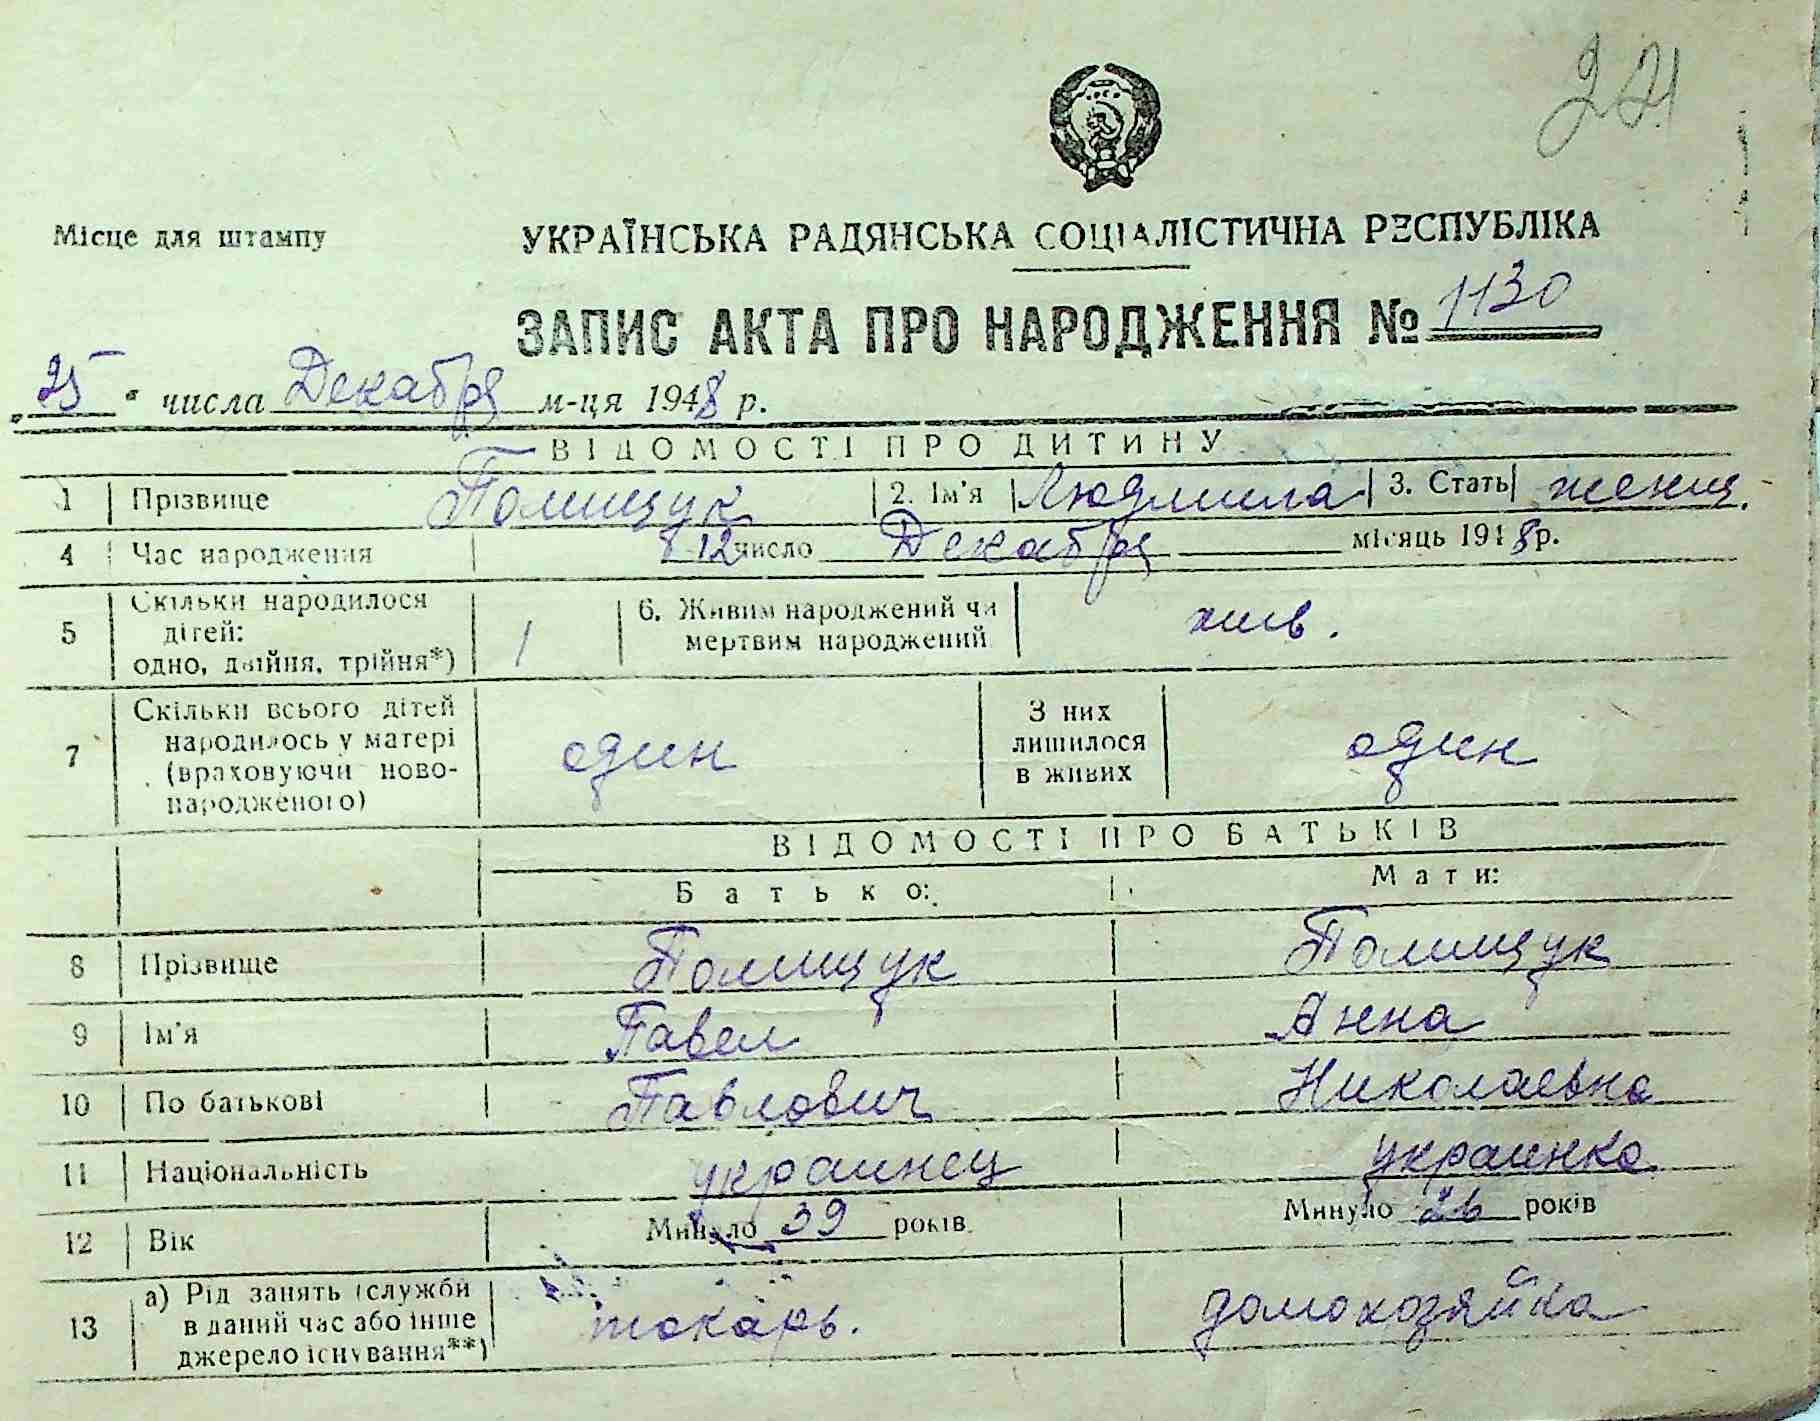 221
Місце для штампу
УКРАЇНСЬКА РАДЯНСЬКА СОЦІАЛІСТИЧНА РЕСПУБЛІКА
ЗАПИС АКТА ПРО НАРОДЖЕННЯ № 1130
„25" числа Декабря м-ця 1948 р.
ВІДОМОСТІ ПРО ДИТИНУ
1 Прізвище Полищук 2. Ім'я Людмила 3. Стать женщ.
4 Час народження 12 число Декабря місяць 1948 р.
5 Скільки народилося дітей: одно, двійня, трійня*) 1 6. Живим народжений чи мертвим народжений жив.
7 Скільки всього дітей народилось у матері (враховуючи ново-народженого) один З них лишилося в живих один
ВІДОМОСТІ ПРО БАТЬКІВ
Батько: Мати:
8 Прізвище Полищук Полищук
9 Ім'я Павел Анна
10 По батькові Павлович Николаевна
11 Національність украинец украинка
12 Вік Минуло 39 років Минуло 26 років
13 а) Рід занять (служби в даний час або інше джерело існування**) токарь. домохозяйка